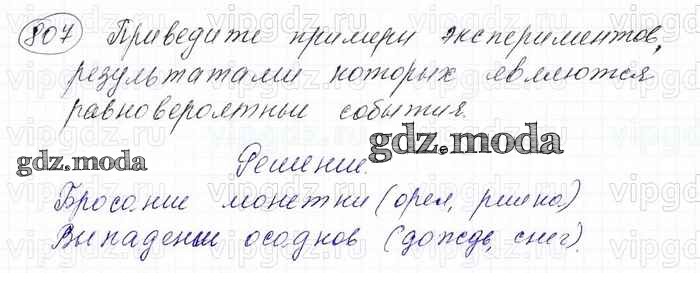 807 Приведите примеры экспериментов,
результатами которых являются
равновероятные события.
gdz.moda
gdz.moda
Решение.
Бросание монетки (орел, решка)
Выпадение осадков (дождь, снег).